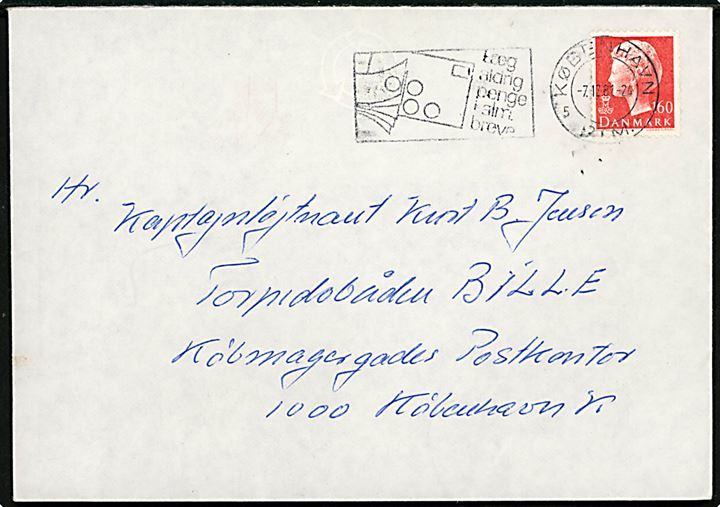 Læg
aldrig
penge
i alm.
breve
KØBENHAVN
-7.12.81-20
5
160
DANMARK
Hr.
Kaptajnløjtnant Kurt B. Jensen
Torpedobåden BILLE
Købmagergades Postkontor
1000 København K